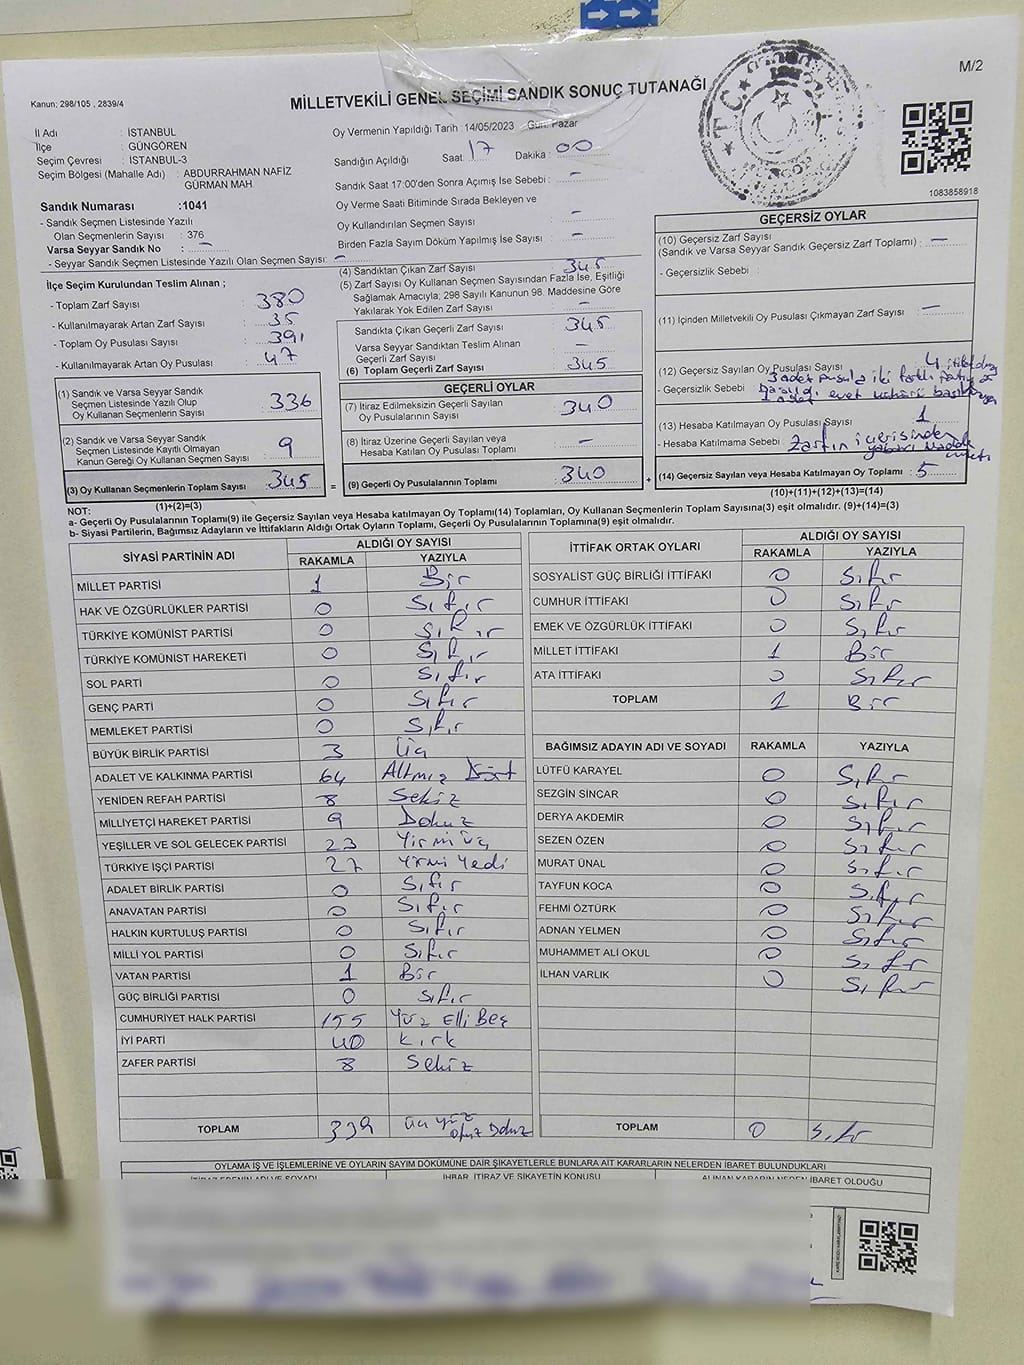 M/2
Kanun: 298/105 , 2839/4
MİLLETVEKİLİ GENEL SEÇİMİ SANDIK SONUÇ TUTANAĞI
İl Adı : İSTANBUL
İlçe : GÜNGÖREN
Seçim Çevresi : İSTANBUL-3
Seçim Bölgesi (Mahalle Adı) : ABDURRAHMAN NAFİZ
GÜRMAN MAH
Sandık Numarası :1041
- Sandık Seçmen Listesinde Yazılı
Olan Seçmenlerin Sayısı : 376
Varsa Seyyar Sandık No : -
- Seyyar Sandık Seçmen Listesinde Yazılı Olan Seçmen Sayısı: -
Oy Vermenin Yapıldığı Tarih :14/05/2023 Gün: Pazar
Sandığın Açıldığı Saat 17 Dakika : 00
Sandık Saat 17:00'den Sonra Açımış İse Sebebi : -
Oy Verme Saati Bitiminde Sırada Bekleyen ve
Oy Kullandırılan Seçmen Sayısı : -
Birden Fazla Sayım Döküm Yapılmış İse Sayısı : -
T.C.
1083858918
İlçe Seçim Kurulundan Teslim Alınan ;
- Toplam Zarf Sayısı : 380
- Kullanılmayarak Artan Zarf Sayısı : 35
- Toplam Oy Pusulası Sayısı : 391
- Kullanılmayarak Artan Oy Pusulası : 47
(1) Sandık ve Varsa Seyyar Sandık
Seçmen Listesinde Yazılı Olup
Oy Kullanan Seçmenlerin Sayısı : 336
(2) Sandık ve Varsa Seyyar Sandık
Seçmen Listesinde Kayıtlı Olmayan
Kanun Gereği Oy Kullanan Seçmen Sayısı : 9
(3) Oy Kullanan Seçmenlerin Toplam Sayısı : 345
(1)+(2)=(3)
(4) Sandıktan Çıkan Zarf Sayısı : 345
(5) Zarf Sayısı Oy Kullanan Seçmen Sayısından Fazla İse, Eşitliği
Sağlamak Amacıyla; 298 Sayılı Kanunun 98. Maddesine Göre
Yakılarak Yok Edilen Zarf Sayısı : -
Sandıkta Çıkan Geçerli Zarf Sayısı : 345
Varsa Seyyar Sandıktan Teslim Alınan
Geçerli Zarf Sayısı : -
(6) Toplam Geçerli Zarf Sayısı : 345
GEÇERLİ OYLAR
(7) İtiraz Edilmeksizin Geçerli Sayılan
Oy Pusulalarının Sayısı : 340
(8) İtiraz Üzerine Geçerli Sayılan veya
Hesaba Katılan Oy Pusulası Toplamı : -
= (9) Geçerli Oy Pusulalarının Toplamı : 340 +
GEÇERSİZ OYLAR
(10) Geçersiz Zarf Sayısı
(Sandık ve Varsa Seyyar Sandık Geçersiz Zarf Toplamı) : -
- Geçersizlik Sebebi :
(11) İçinden Milletvekili Oy Pusulası Çıkmayan Zarf Sayısı : -
(12) Geçersiz Sayılan Oy Pusulası Sayısı : 4
- Geçersizlik Sebebi : 3 adet pusula iki farklı
evet mührü
(13) Hesaba Katılmayan Oy Pusulası Sayısı : 1
- Hesaba Katılmama Sebebi : Zarfın içerisinde
yabancı madde
(14) Geçersiz Sayılan veya Hesaba Katılmayan Oy Toplamı : 5
(10)+(11)+(12)+(13)=(14)
NOT:
a- Geçerli Oy Pusulalarının Toplamı(9) ile Geçersiz Sayılan veya Hesaba katılmayan Oy Toplamı(14) Toplamları, Oy Kullanan Seçmenlerin Toplam Sayısına(3) eşit olmalıdır. (9)+(14)=(3)
b- Siyasi Partilerin, Bağımsız Adayların ve İttifakların Aldığı Ortak Oyların Toplamı, Geçerli Oy Pusulalarının Toplamına(9) eşit olmalıdır.
SİYASİ PARTİNİN ADI ALDIĞI OY SAYISI
RAKAMLA YAZIYLA
MİLLET PARTİSİ 1 Bir
HAK VE ÖZGÜRLÜKLER PARTİSİ 0 Sıfır
TÜRKİYE KOMÜNİST PARTİSİ 0 Sıfır
TÜRKİYE KOMÜNİST HAREKETİ 0 Sıfır
SOL PARTİ 0 Sıfır
GENÇ PARTİ 0 Sıfır
MEMLEKET PARTİSİ 0 Sıfır
BÜYÜK BİRLİK PARTİSİ 3 Üç
ADALET VE KALKINMA PARTİSİ 64 Altmış Dört
YENİDEN REFAH PARTİSİ 8 Sekiz
MİLLİYETÇİ HAREKET PARTİSİ 9 Dokuz
YEŞİLLER VE SOL GELECEK PARTİSİ 23 Yirmi üç
TÜRKİYE İŞÇİ PARTİSİ 27 Yirmi Yedi
ADALET BİRLİK PARTİSİ 0 Sıfır
ANAVATAN PARTİSİ 0 Sıfır
HALKIN KURTULUŞ PARTİSİ 0 Sıfır
MİLLİ YOL PARTİSİ 0 Sıfır
VATAN PARTİSİ 1 Bir
GÜÇ BİRLİĞİ PARTİSİ 0 Sıfır
CUMHURİYET HALK PARTİSİ 155 Yüz Elli Beş
İYİ PARTİ 40 Kırk
ZAFER PARTİSİ 8 Sekiz
TOPLAM 339 Üç Yüz
Otuz Dokuz
İTTİFAK ORTAK OYLARI ALDIĞI OY SAYISI
RAKAMLA YAZIYLA
SOSYALİST GÜÇ BİRLİĞİ İTTİFAKI 0 Sıfır
CUMHUR İTTİFAKI 0 Sıfır
EMEK VE ÖZGÜRLÜK İTTİFAKI 0 Sıfır
MİLLET İTTİFAKI 1 Bir
ATA İTTİFAKI 0 Sıfır
TOPLAM 1 Bir
BAĞIMSIZ ADAYIN ADI VE SOYADI RAKAMLA YAZIYLA
LÜTFÜ KARAYEL 0 Sıfır
SEZGİN SİNCAR 0 Sıfır
DERYA AKDEMİR 0 Sıfır
SEZEN ÖZEN 0 Sıfır
MURAT ÜNAL 0 Sıfır
TAYFUN KOCA 0 Sıfır
FEHMİ ÖZTÜRK 0 Sıfır
ADNAN YELMEN 0 Sıfır
MUHAMMET ALİ OKUL 0 Sıfır
İLHAN VARLIK 0 Sıfır
TOPLAM 0 Sıfır
OYLAMA İŞ VE İŞLEMLERİNE VE OYLARIN SAYIM DÖKÜMÜNE DAİR ŞİKAYETLERLE BUNLARA AİT KARARLARIN NELERDEN İBARET BULUNDUKLARI
İTİRAZ EDENİN ADI VE SOYADI İHBAR, İTİRAZ VE ŞİKAYETİN KONUSU ALINAN KARARIN NEDEN İBARET OLDUĞU